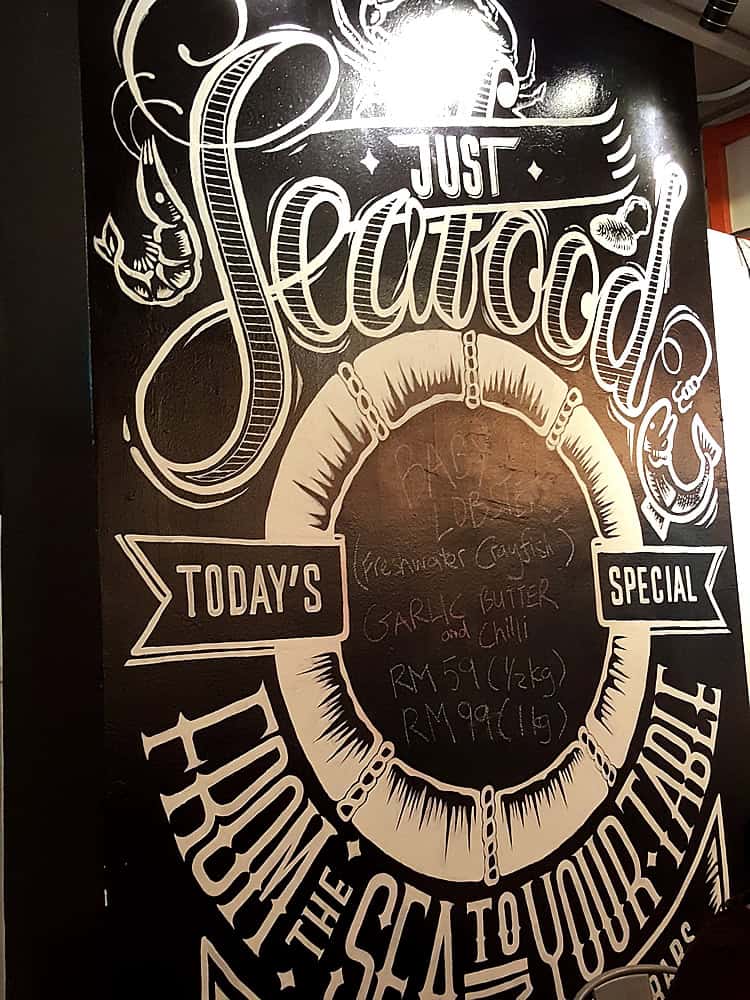 JUST
Seafood
TODAY'S
SPECIAL
BABY
LOBSTER
(Freshwater Crayfish)
GARLIC BUTTER
and Chilli
RM 59 (1/2kg)
RM 99 (1kg)
FROM THE SEA TO YOUR TABLE